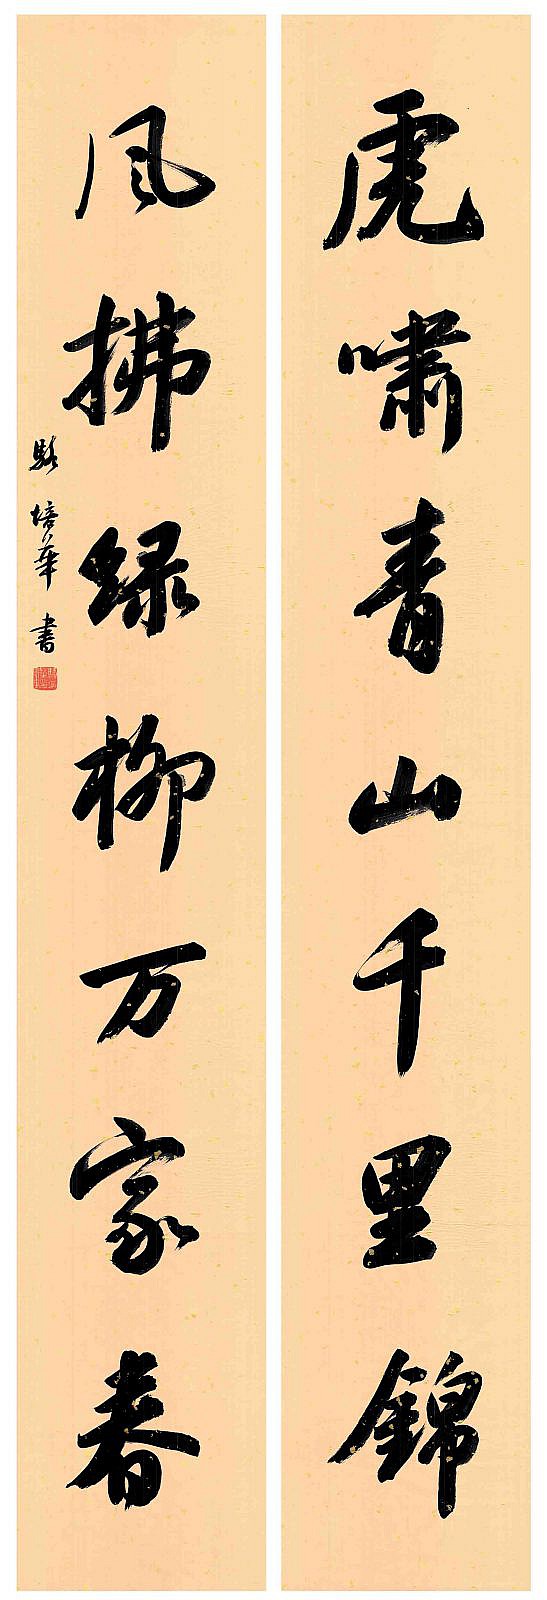 虎啸青山千里錦
风拂绿柳万家春
骆培华書